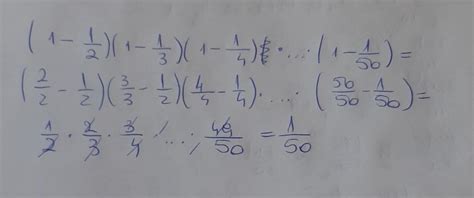 (1 - 1/2)(1 - 1/3)(1 - 1/4) · ... (1 - 1/50) =
(2/2 - 1/2)(3/3 - 1/2)(4/4 - 1/4) · .... (50/50 - 1/50) =
1/2 · 2/3 · 3/4 · ... · 49/50 = 1/50